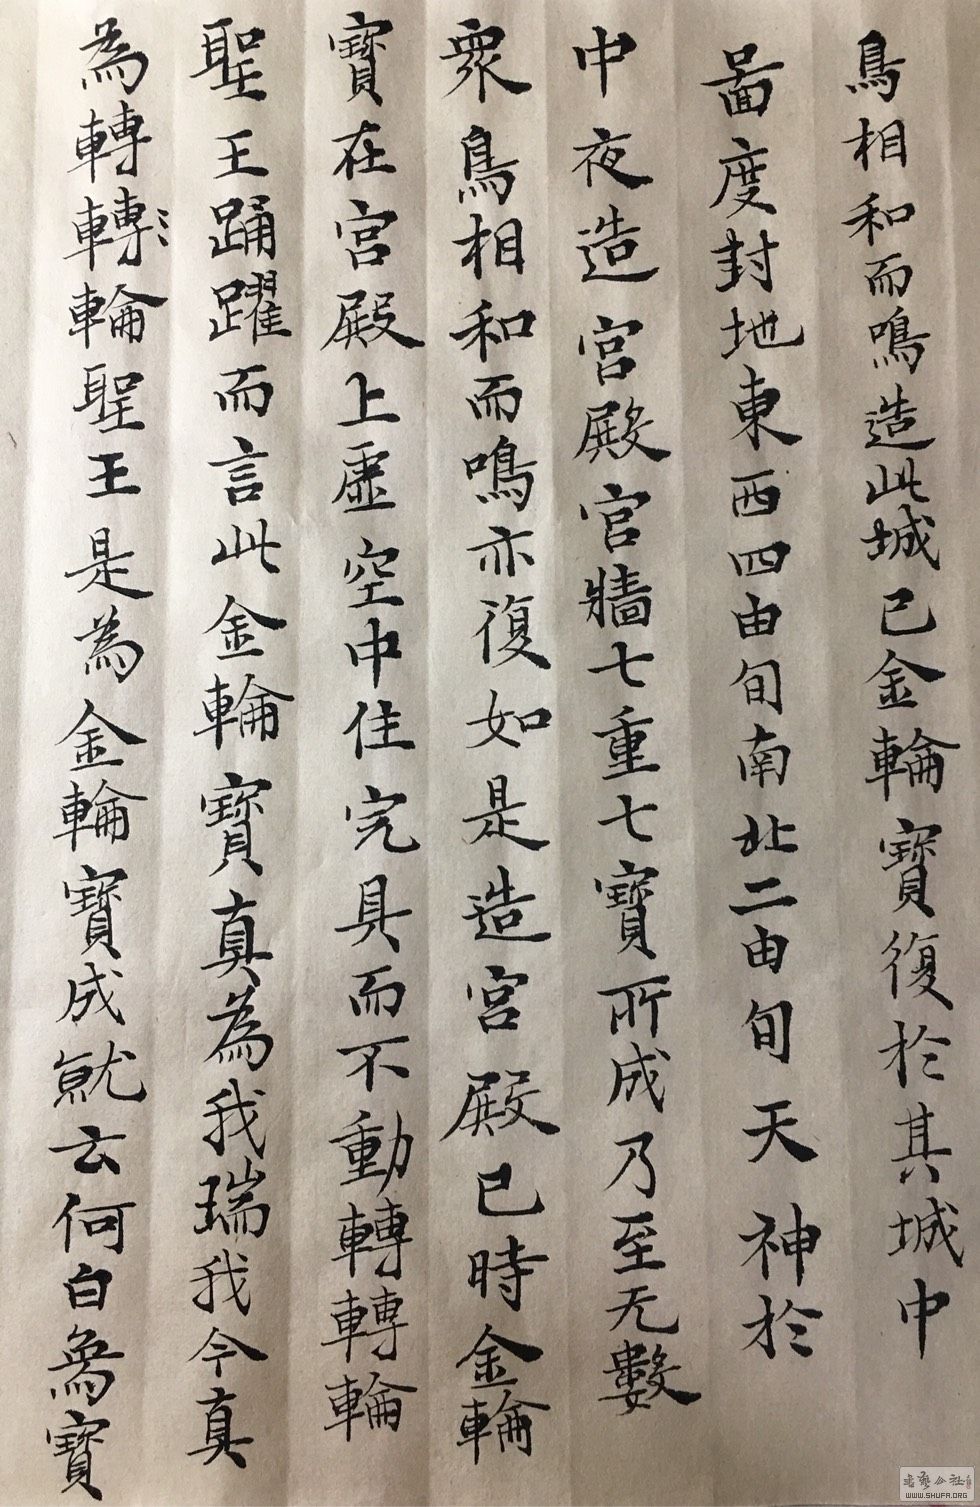 鳥相和而鳴造此城已金輪寶復於其城中
啚度封地東西四由旬南北二由旬天神於
中夜造宮殿宮牆七重七寶所成乃至无數
眾鳥相和而鳴亦復如是造宮殿已時金輪
寶在宮殿上虛空中住完具而不動轉轉輪
聖王踊躍而言此金輪寶真為我瑞我今真
為轉轉輪聖王是為金輪寶成就云何白象寶
WWW.SHUFA.ORG